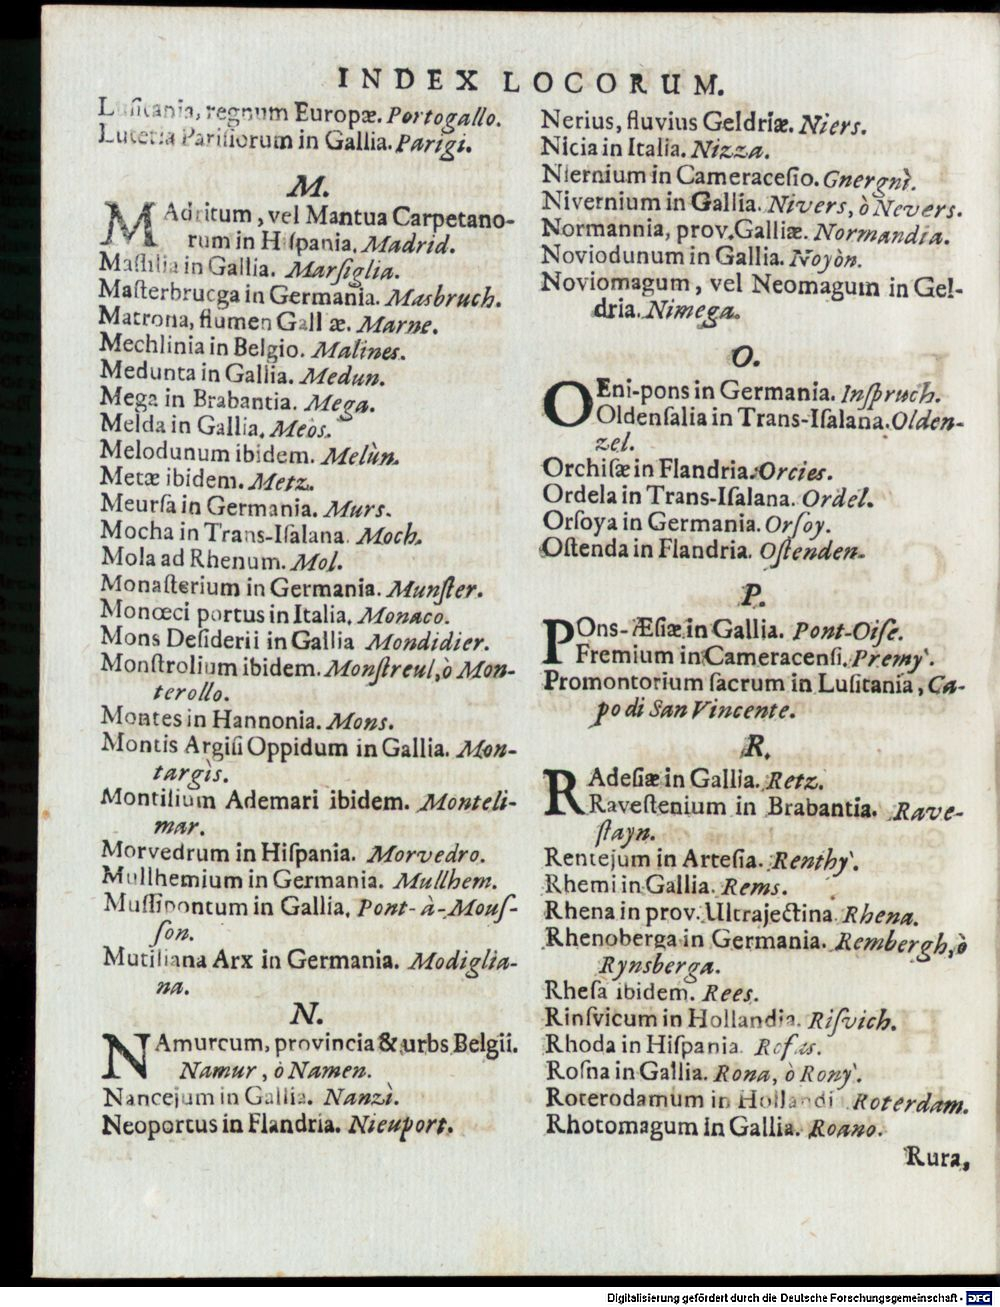 INDEX LOCORUM.
Luſitania, regnum Europæ. Portogallo.
Lutetia Pariſiorum in Gallia. Parigi.
M.
MAdritum, vel Mantua Carpetano-
rum in Hiſpania. Madrid.
Maſſilia in Gallia. Marſiglia.
Maſterbrucga in Germania. Masbruch.
Matrona, flumen Gall æ. Marne.
Mechlinia in Belgio. Malines.
Medunta in Gallia. Medun.
Mega in Brabantia. Mega.
Melda in Gallia. Meòs.
Melodunum ibidem. Melùn.
Metæ ibidem. Metz.
Meurſa in Germania. Murs.
Mocha in Trans-Iſalana. Moch.
Mola ad Rhenum. Mol.
Monaſterium in Germania. Munſter.
Monœci portus in Italia. Monaco.
Mons Deſiderii in Gallia Mondidier.
Monſtrolium ibidem. Monſtreul, ò Mon-
terollo.
Montes in Hannonia. Mons.
Montis Argiſi Oppidum in Gallia. Mon-
targìs.
Montilium Ademari ibidem. Monteli-
mar.
Morvedrum in Hiſpania. Morvedro.
Mullhemium in Germania. Mullhem.
Muſſipontum in Gallia. Pont-à-Mouſ-
ſon.
Mutiliana Arx in Germania. Modiglia-
na.
N.
NAmurcum, provincia & urbs Belgii.
Namur, ò Namen.
Nancejum in Gallia. Nanzì.
Neoportus in Flandria. Nieuport.
Nerius, fluvius Geldriæ. Niers.
Nicia in Italia. Nizza.
Niernium in Cameraceſio. Gnergnì.
Nivernium in Gallia. Nivers, ò Nevers.
Normannia, prov. Galliæ. Normandia.
Noviodunum in Gallia. Noyòn.
Noviomagum, vel Neomagum in Gel-
dria. Nimega.
O.
OEni-pons in Germania. Inſpruch.
Oldenſalia in Trans-Iſalana. Olden-
zel.
Orchiſæ in Flandria. Orcies.
Ordela in Trans-Iſalana. Ordel.
Orſoya in Germania. Orſoy.
Oſtenda in Flandria. Oſtenden.
P.
POns-Æſiæ in Gallia. Pont-Oiſe.
Fremium in Cameracenſi. Premy`.
Promontorium ſacrum in Luſitania, Ca-
po di San Vincente.
R.
RAdeſiæ in Gallia. Retz.
Raveſtenium in Brabantia. Rave-
ſtayn.
Rentejum in Arteſia. Renthy`.
Rhemi in Gallia. Rems.
Rhena in prov. Ultrajectina. Rhena.
Rhenoberga in Germania. Rembergh, ò
Rynsberga.
Rheſa ibidem. Rees.
Rinſvicum in Hollandia. Riſvich.
Rhoda in Hiſpania. Roſas.
Roſna in Gallia. Rona, ò Rony`.
Roterodamum in Hollandi . Roterdam.
Rhotomagum in Gallia. Roano.
Rura,
Digitalisierung gefördert durch die Deutsche Forschungsgemeinschaft - DFG